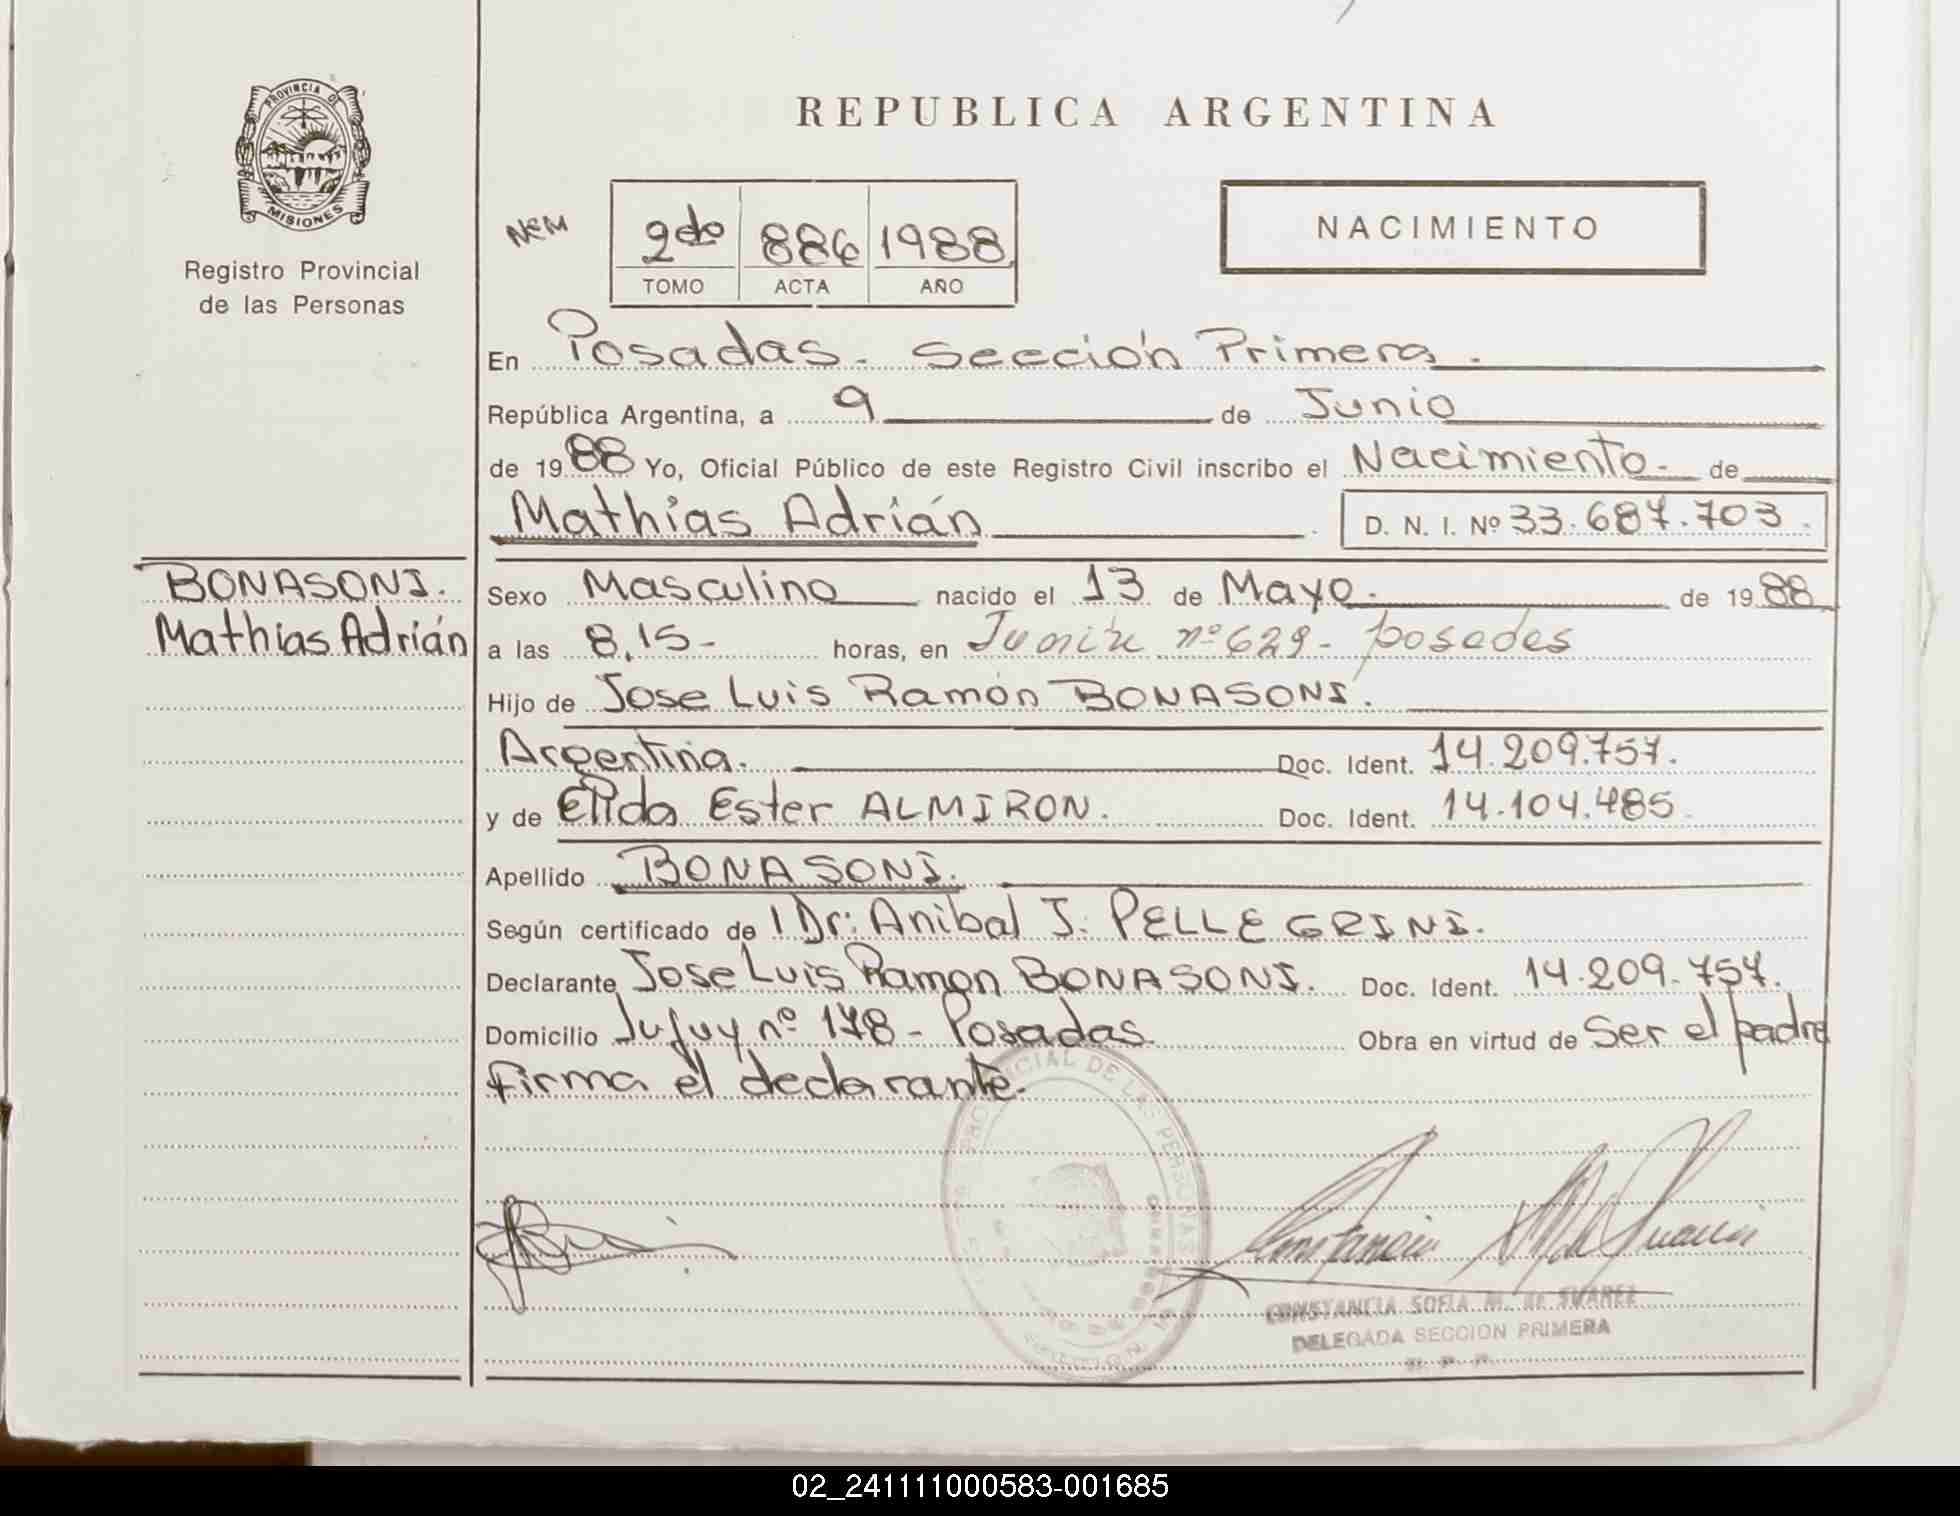 REPUBLICA ARGENTINA
PROVINCIA DE
MISIONES
Registro Provincial
de las Personas
NEM
2do 886 1988
TOMO ACTA AÑO
NACIMIENTO
En Posadas. Sección Primera.
República Argentina, a 9 de Junio
de 1988 Yo, Oficial Público de este Registro Civil inscribo el Nacimiento. de
Mathías Adrián
D. N. I. Nº 33.687.703.
BONASONI.
Mathías Adrián
Sexo Masculino nacido el 13 de Mayo. de 1988
a las 8,15- horas, en Junín nº 629- posadas
Hijo de Jose Luis Ramón BONASONI.
Argentina. Doc. Ident. 14.209.757.
y de Elida Ester ALMIRON. Doc. Ident. 14.104.485.
Apellido BONASONI.
Según certificado de l Dr: Anibal J. PELLEGRINI.
Declarante Jose Luis Ramon BONASONI. Doc. Ident. 14.209.757.
Domicilio Jujuy nº 178- Posadas. Obra en virtud de Ser el padre
firma el declarante.
CONSTANCIA SOFIA M. de SUAREZ
DELEGADA SECCION PRIMERA
R. P. P.
02_241111000583-001685